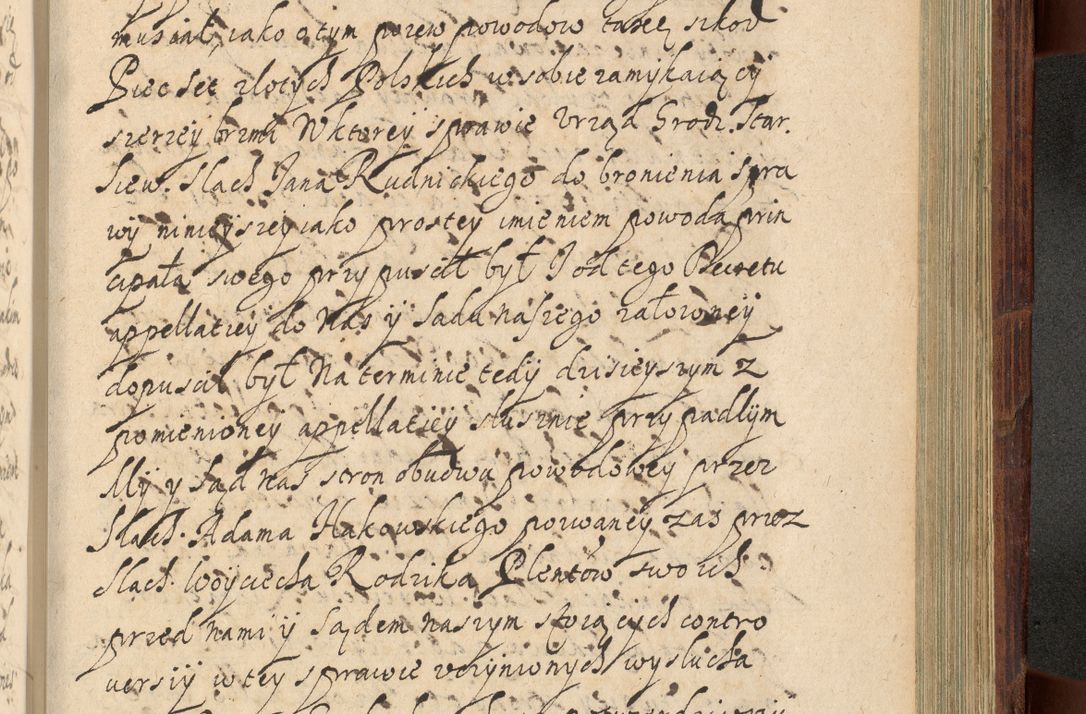 musiał, jako o tym pozew powodow taxę szkod
Piec set złotych Polskich w sobie zamykaiący
szerzey brzmi W ktorey sprawie Vrząd Grodz. Star.
Siew. Slach Jana Rudnickiego do bronienia spra
wy ninieyszey jako prostey imieniem powoda prin
cipała swego przypuscił był J od tego Decretu
appellatiey do Nas y Sadu naszego załozoney
dopuscił był Na terminie tedy dzisieyszym z
pomienioney appellatiey słusznie przypadłym
My y Sąd nas stron obudwu powodowey przez
Slach. Adama Hakowskiego pozwaney zas przez
Slach. Woyciecha Rodzika Plentów swoich
przed nami y Sądem naszym stoiących contro
uersiy w tey sprawie vczynionych wysłucha